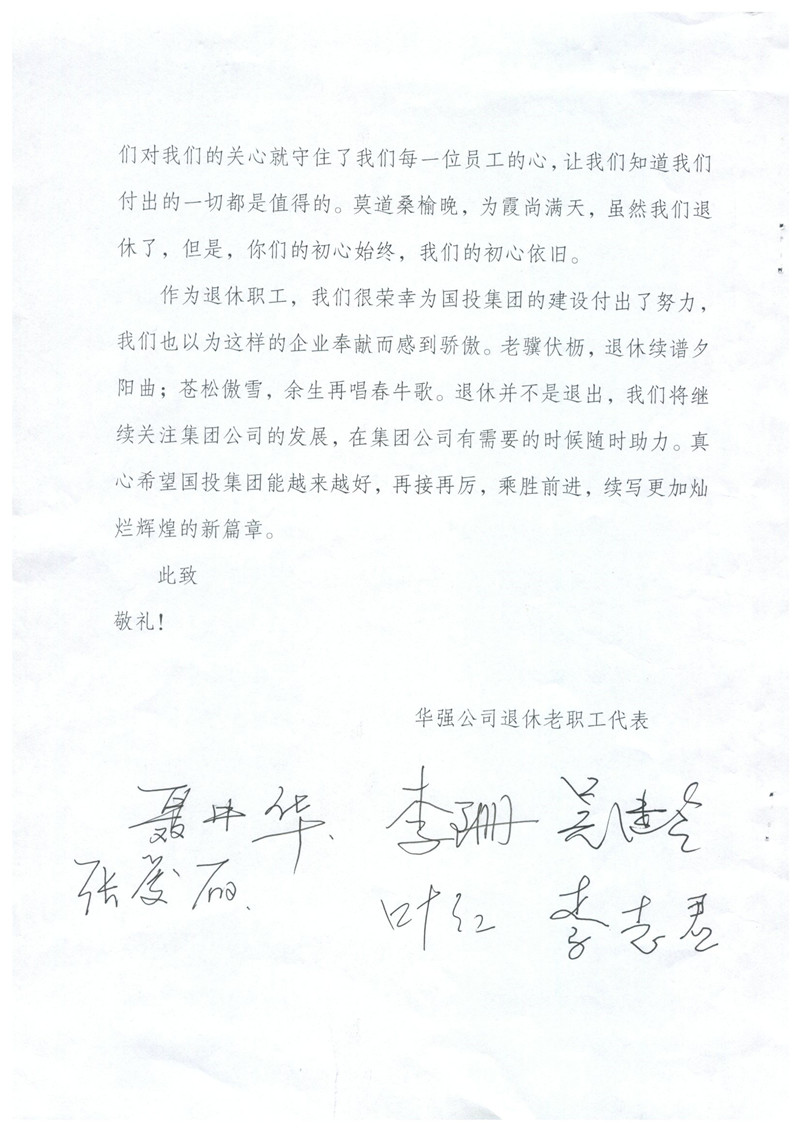 们对我们的关心就守住了我们每一位员工的心，让我们知道我们
付出的一切都是值得的。莫道桑榆晚，为霞尚满天，虽然我们退
休了，但是，你们的初心始终，我们的初心依旧。
作为退休职工，我们很荣幸为国投集团的建设付出了努力，
我们也以为这样的企业奉献而感到骄傲。老骥伏枥，退休续谱夕
阳曲；苍松傲雪，余生再唱春牛歌。退休并不是退出，我们将继
续关注集团公司的发展，在集团公司有需要的时候随时助力。真
心希望国投集团能越来越好，再接再厉，乘胜前进，续写更加灿
烂辉煌的新篇章。
此致
敬礼！
华强公司退休老职工代表
聂中华 李珊
叶红 李志君